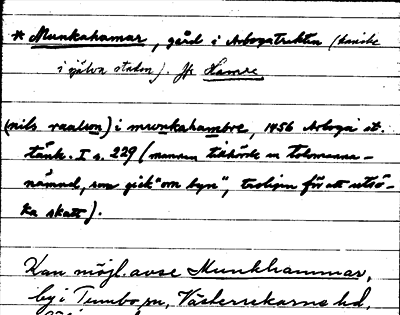 * Munkahamar, gård i Arbogatrakten (kanske
i själva staden). Jfr Hamre
(nils raalson) i mwnkahambre, 1456 Arboga st.
tänk. I s. 229 (mannen tillhörde en tolvmanna-
nämnd, som gick "om byn", troligen för att utsö-
ka skatt).
Kan möjl. avse Munkhammar,
by i Tumbo sn, Västerrekarne hd,